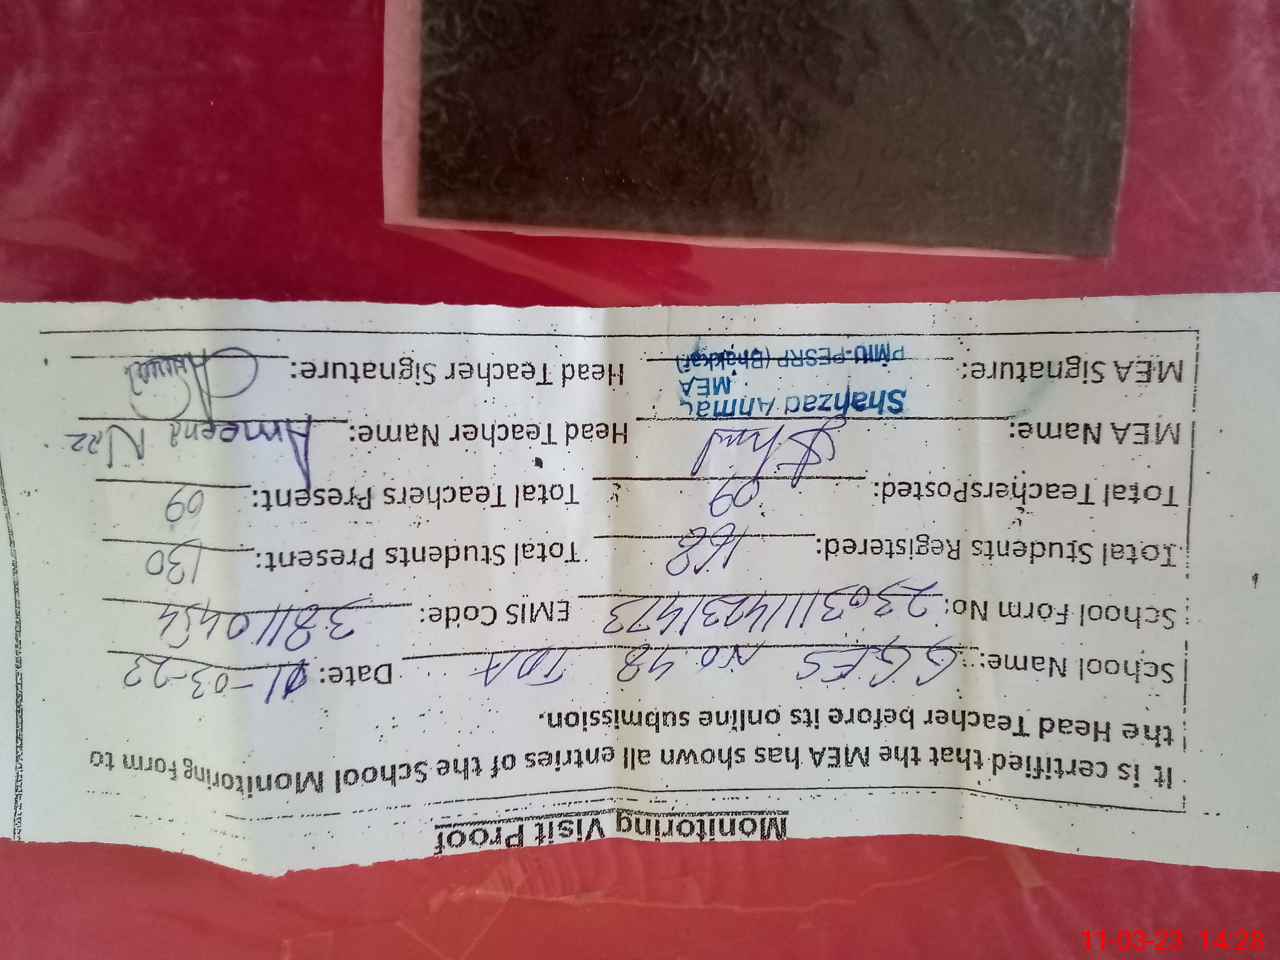 Monitoring Visit Proof
It is certified that the MEA has shown all entries of the School Monitoring Form to
the Head Teacher before its online submission.
School Name: GGES No 48 TDA Date: 11-03-23
School Form No: 23031114231473 EMIS Code: 38110454
Total Students Registered: 168 Total Students Present: 130
Total TeachersPosted: 09 Total Teachers Present: 09
MEA Name: Head Teacher Name: Ameena Niaz
Shahzad Ahmad
MEA
MEA Signature: PMIU-PESRP (Bhakkar) Head Teacher Signature:
11-03-23 14:28